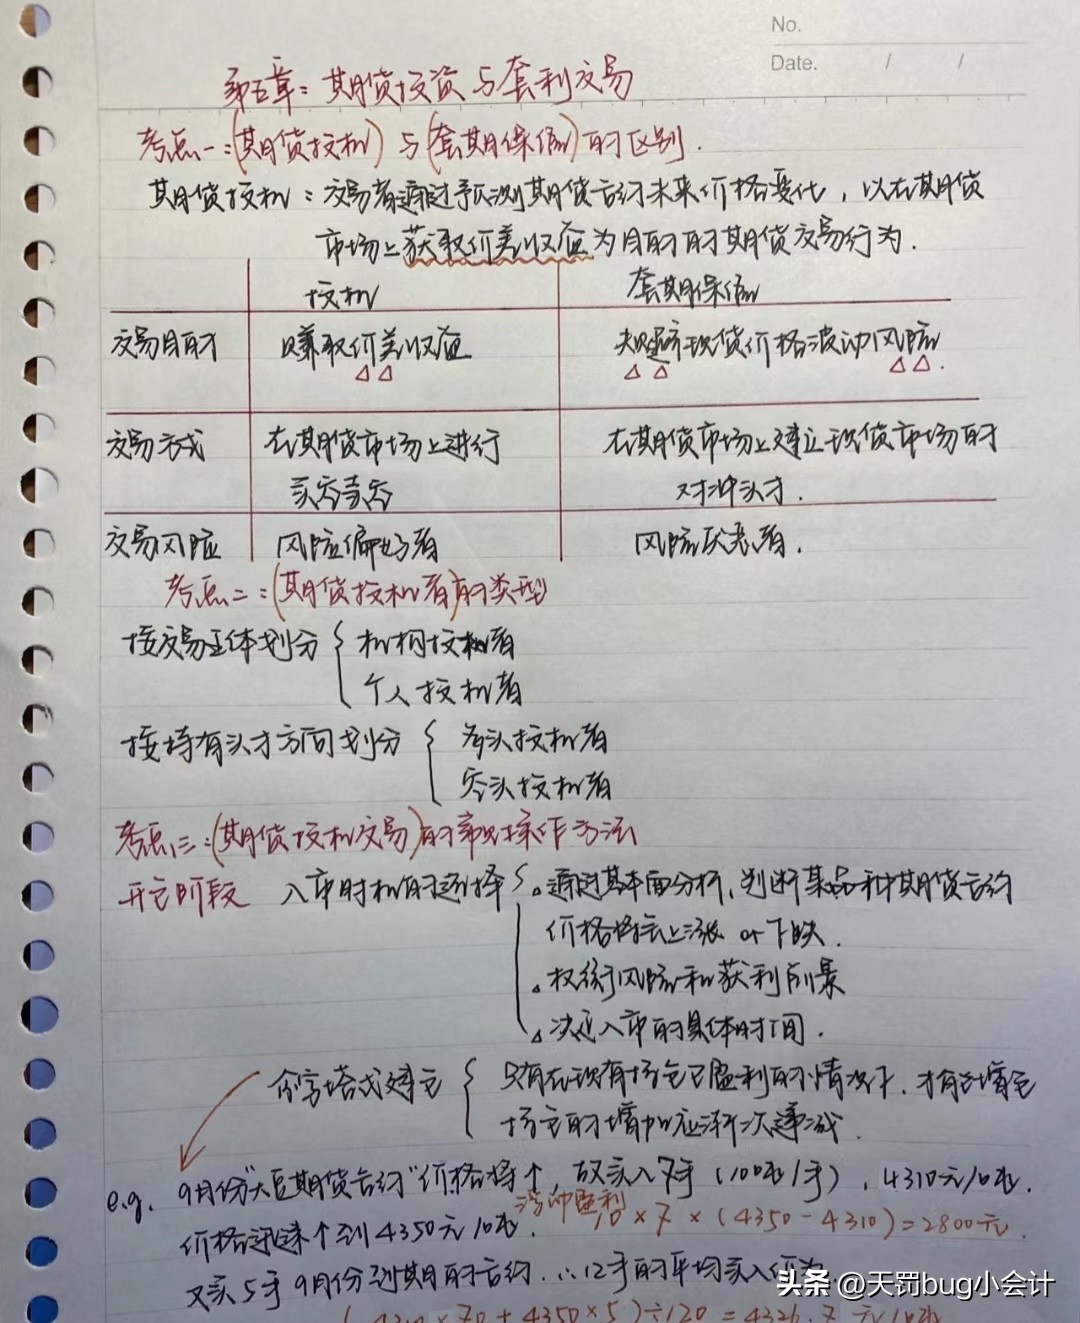 No.
Date. / /
第五章：期货投资与套利交易
考点一：(期货投机)与(套期保值)的区别.
期货投机：交易者通过预测期货合约未来价格变化，以在期货
市场上获取价差收益为目的的期货交易行为.
投机 套期保值
交易目的 赚取价差收益 规避现货价格波动风险.
交易方式 在期货市场上进行 在期货市场上建立现货市场的
买空卖空 对冲头寸.
交易风险 风险偏好者 风险厌恶者.
考点二：(期货投机者)的类型
按交易主体划分 { 机构投机者
个人投机者
按持有头寸方向划分 { 多头投机者
空头投机者
考点三：(期货投机交易)的常见操作方法
开仓阶段 入市时机的选择 { 通过基本面分析，判断某品种期货合约
价格将会上涨 or 下跌.
权衡风险和获利前景
决定入市的具体时间.
金字塔式建仓 { 只有在现有持仓已盈利的情况下，才有会增仓
持仓的增加应渐次递减.
e.g. 9月份"大豆期货合约"价格将↑，故买入7手(10吨/手)，4310元/吨.
价格迅速↑到4350元/吨. 浮动盈利 10×7×(4350-4310)=2800元.
又买5手9月份到期的合约.∴12手的平均买入价为
头条 @天罚bug小会计
(4310×70+4350×5)÷120=4326.7元/吨